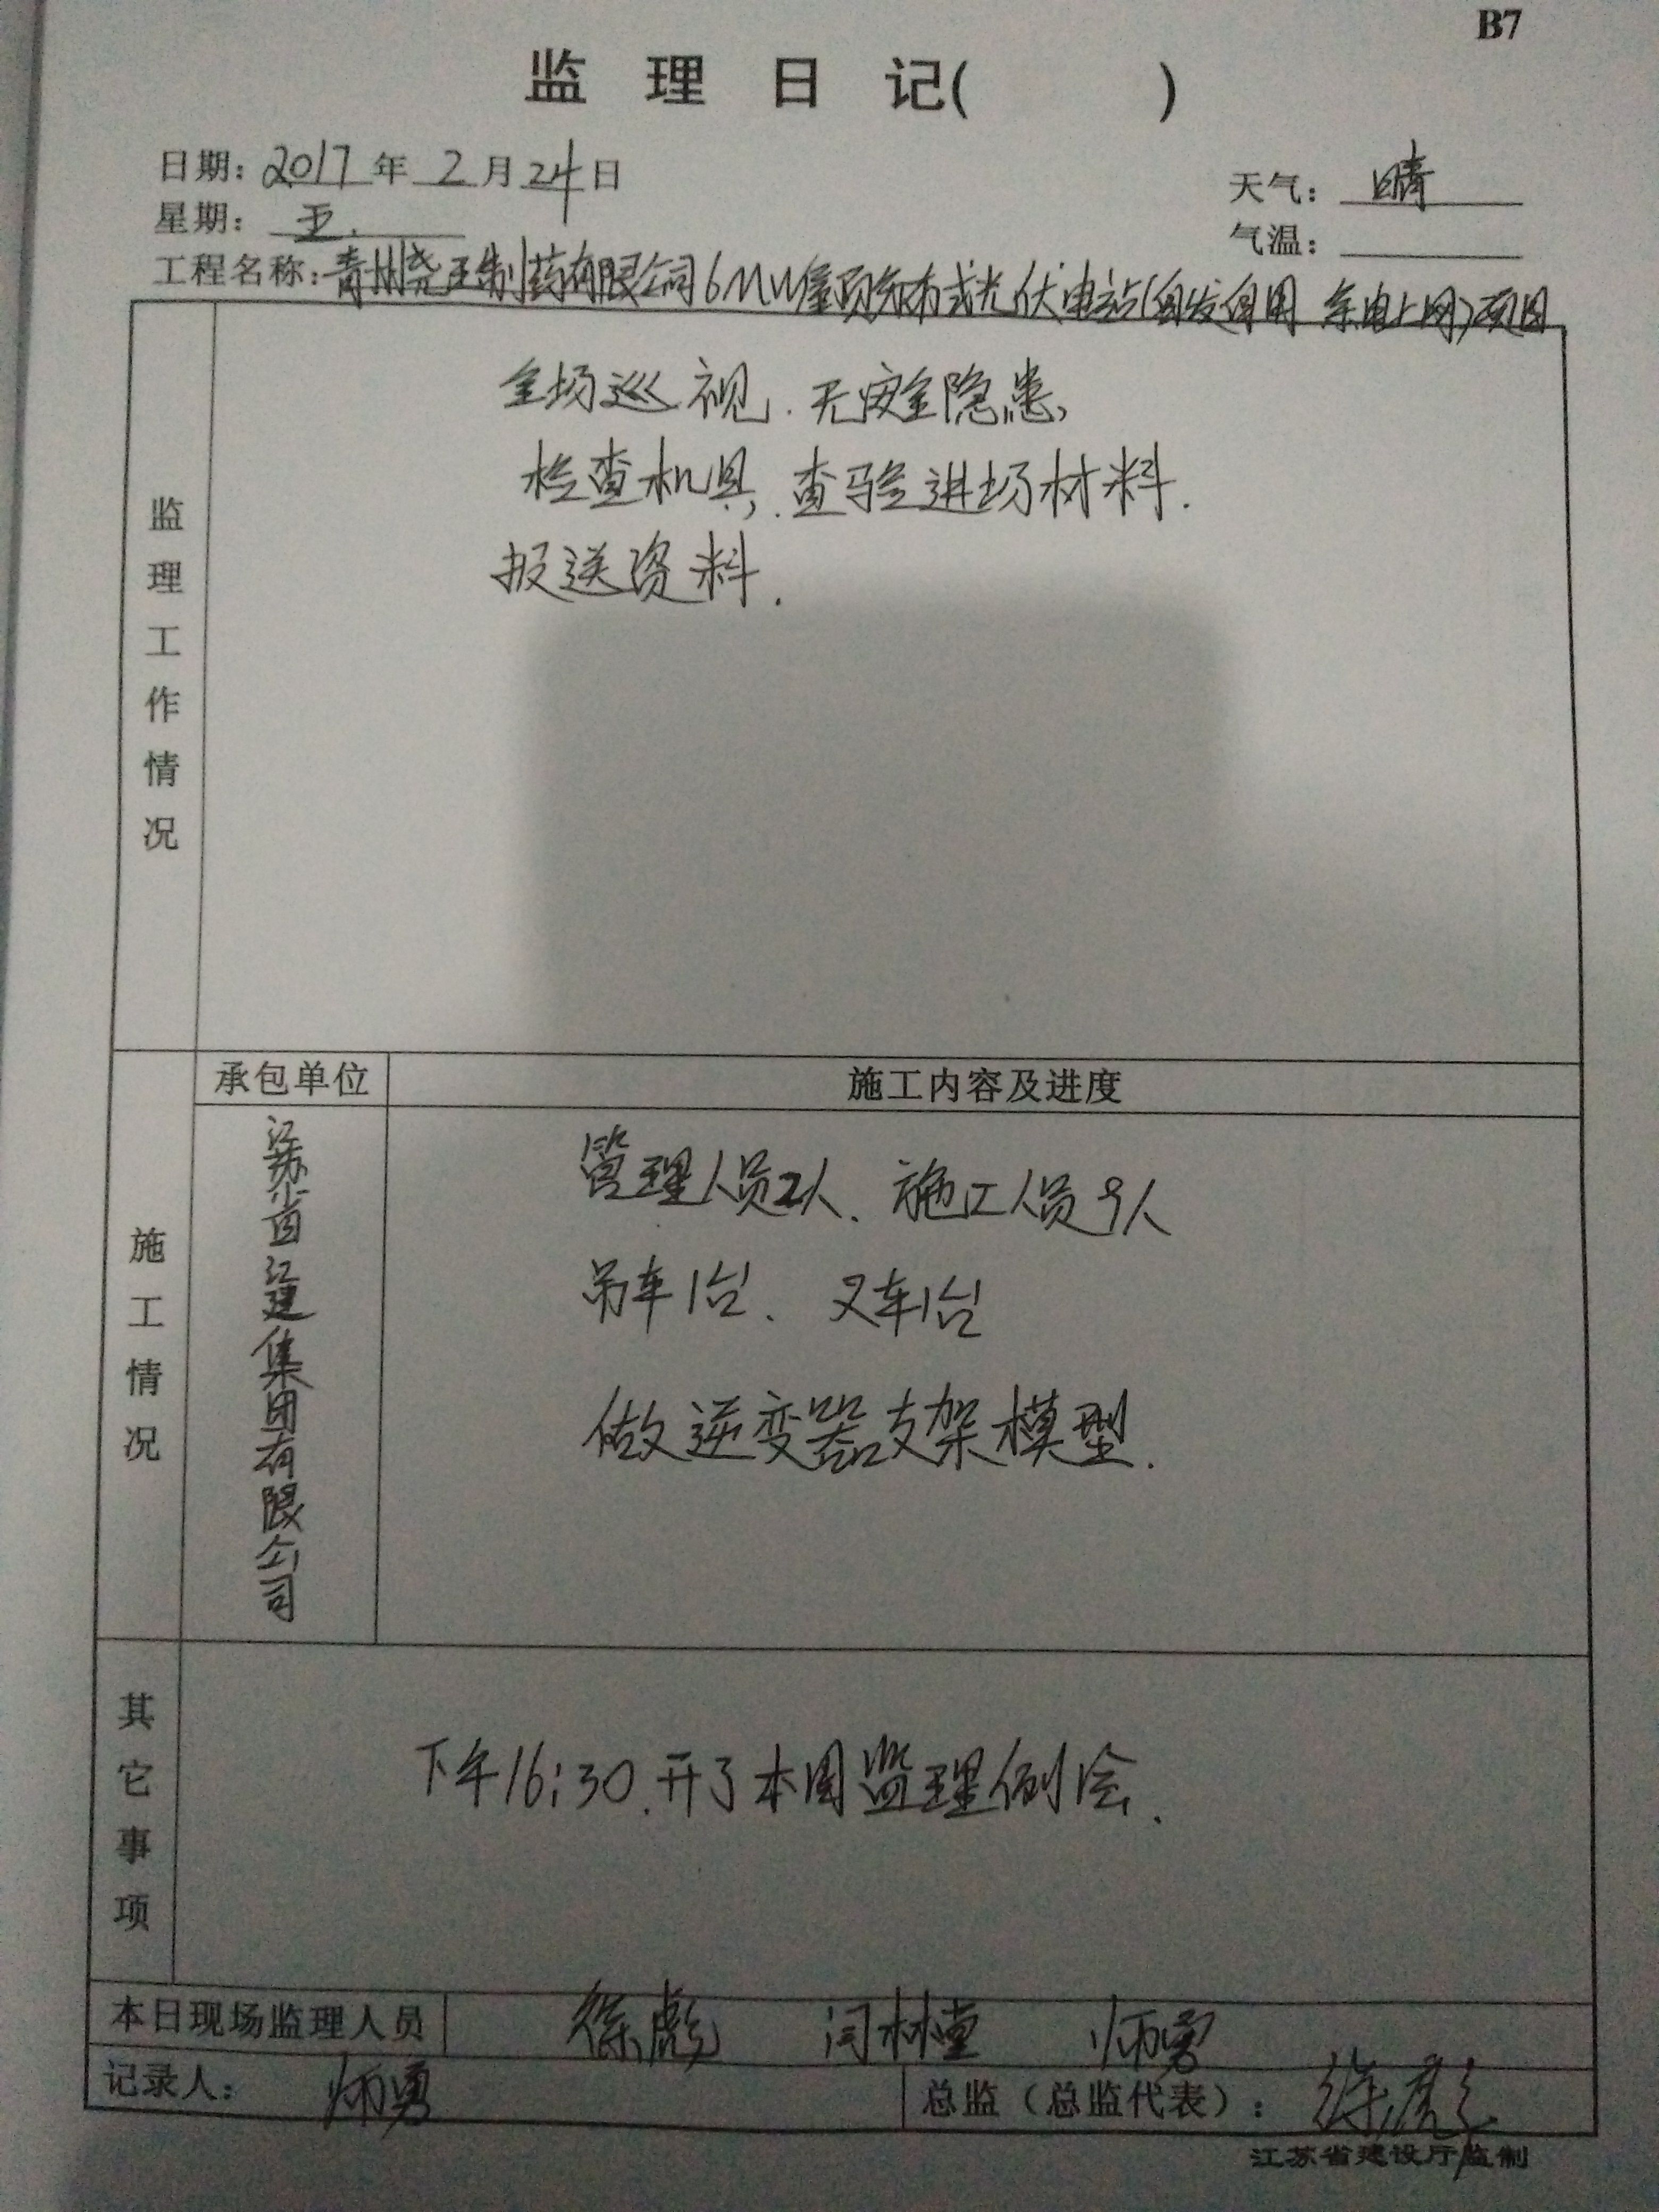 B7
监理日记( )
日期：2017年2月24日
天气：晴
星期：五.
气温：
工程名称：青州尧王制药有限公司6MW屋顶分布式光伏电站(自发自用 余电上网)项目
监理工作情况
全场巡视.无安全隐患、
检查机具，查验进场材料.
报送资料.
施工情况
承包单位
施工内容及进度
江苏省江建集团有限公司
管理人员2人、施工人员9人
吊车1台、叉车1台
做逆变器支架模型.
其它事项
下午16:30.开了本周监理例会.
本日现场监理人员
徐彪 闫林堂 师勇
记录人：师勇
总监（总监代表）：徐彪
江苏省建设厅监制